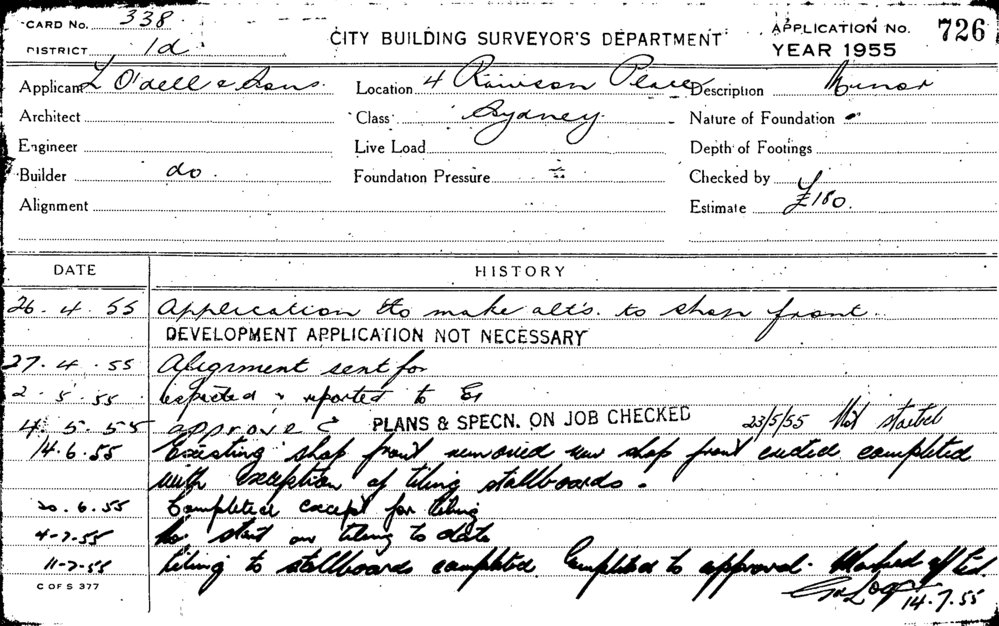 CARD No. 338
DISTRICT 1d
CITY BUILDING SURVEYOR'S DEPARTMENT
APPLICATION No. 726
YEAR 1955
Applicant L O'dell & Sons. Location 4 Rawson Place Description Minor
Architect Class Sydney Nature of Foundation
Engineer Live Load Depth of Footings
Builder do. Foundation Pressure Checked by
Alignment Estimate £180.
DATE HISTORY
26.4.55 Application to make alts. to shop front.
DEVELOPMENT APPLICATION NOT NECESSARY
27.4.55 Alignment sent for
2.5.55 inspected & reported to
4.5.55 approved PLANS & SPECN. ON JOB CHECKED 23/5/55 Not started
14.6.55 Existing shop front removed new shop front completed
with exception of tiling stallboards.
20.6.55 Completed except for tiling
4-7-55 No start on tiling to date
11-7-55 tiling to stallboards completed. Completed to approval. Marked off
14.7.55
C OF S 377